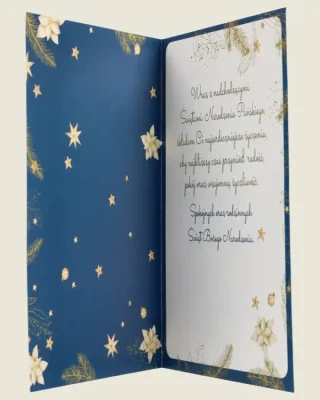 Wraz z nadchodzącymi
Świętami Narodzenia Pańskiego
składam Ci najserdeczniejsze życzenia,
aby najbliższy czas przyniósł radość,
pokój oraz wzajemną życzliwość.
Spokojnych oraz rodzinnych
Świąt Bożego Narodzenia